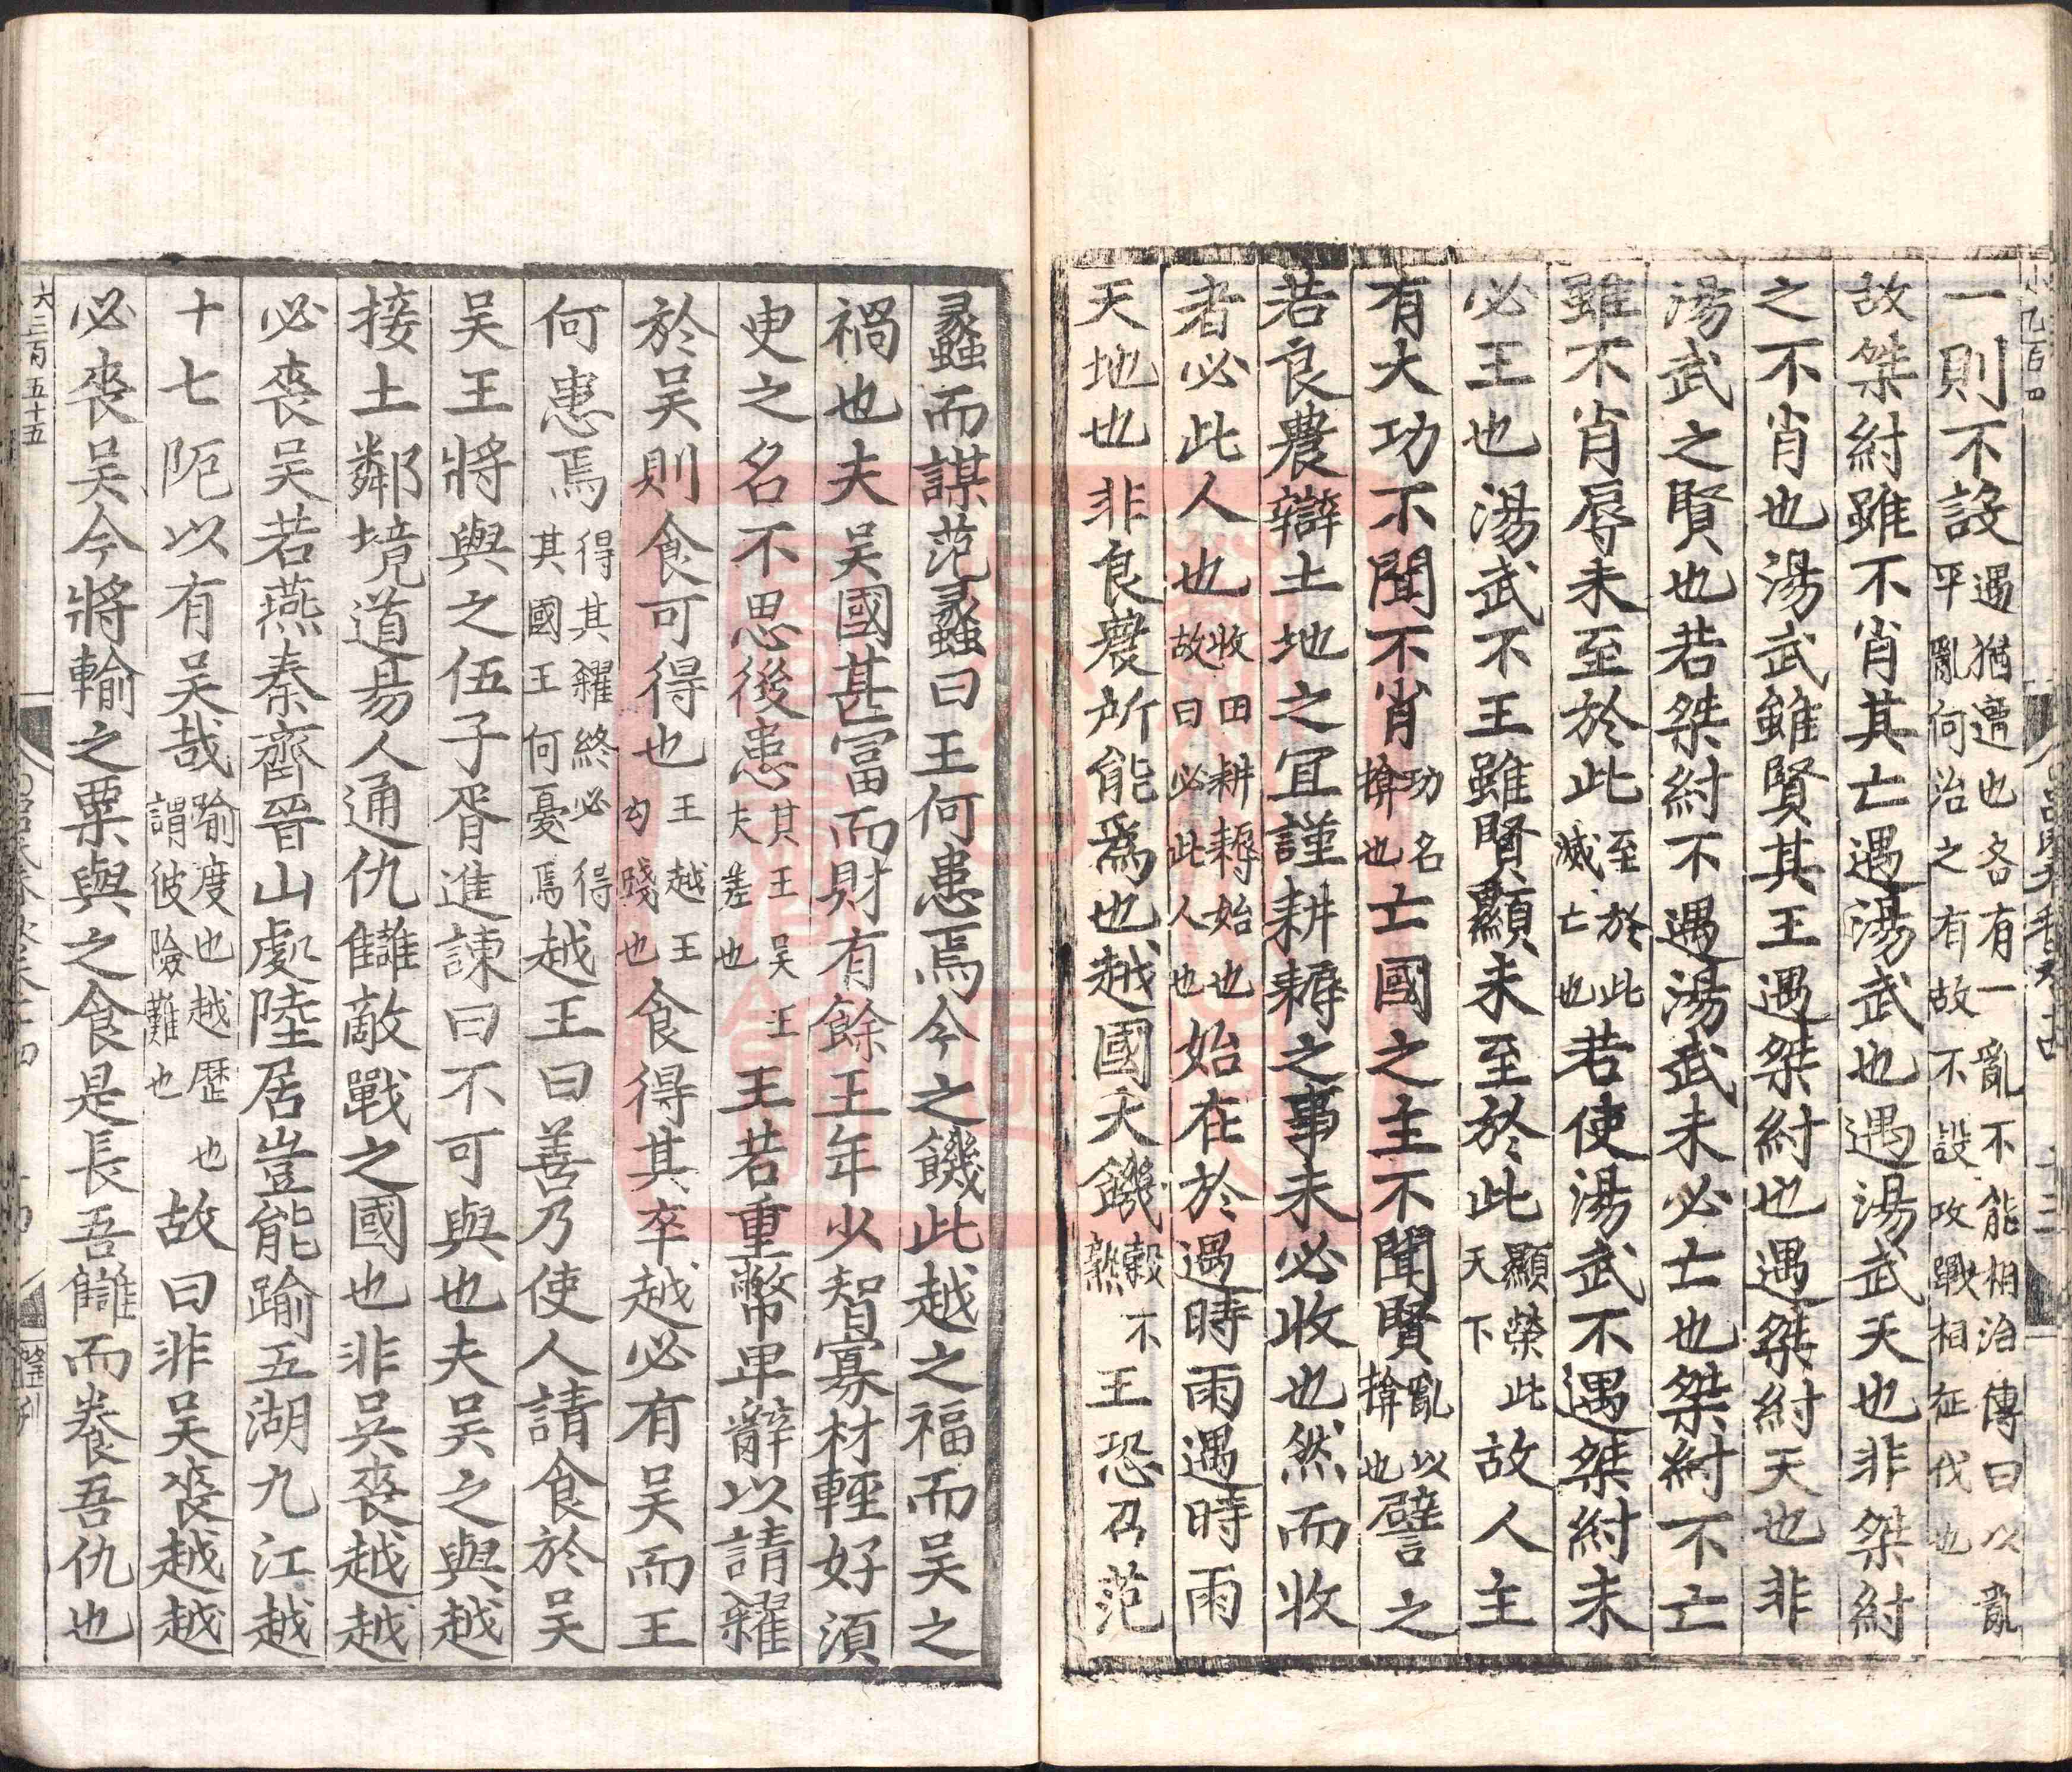 一則不設遇猶遭也各有一亂不能相治傳曰以亂平亂何治之有故不設攻戰相征伐也
故桀紂雖不肖其亡遇湯武也遇湯武天也非桀紂
之不肖也湯武雖賢其王遇桀紂也遇桀紂天也非
湯武之賢也若桀紂不遇湯武未必亡也桀紂不亡
雖不肖辱未至於此至於此滅亡也若使湯武不遇桀紂未
必王也湯武不王雖賢顯未至於此顯榮此天下故人主
有大功不聞不肖功名揜也亡國之主不聞賢亂以揜也譬之
若良農辯土地之宜謹耕耨之事未必收也然而收
者必此人也收田耕耨始也故曰必此人也始在於遇時雨遇時雨
天地也非良農所能爲也越國大饑穀不熟王恐召范
蠡而謀范蠡曰王何患焉今之饑此越之福而吳之
禍也夫吳國甚富而財有餘王年少智寡材輕好須
臾之名不思後患其王吳王夫差也王若重幣卑辭以請糴
於吳則食可得也王越王勾踐也食得其卒越必有吳而王
何患焉得其糴終必得其國王何憂焉越王曰善乃使人請食於吳
吳王將與之伍子胥進諫曰不可與也夫吳之與越
接土鄰境道易人通仇讎敵戰之國也非吳喪越越
必喪吳若燕秦齊晉山處陸居豈能踰五湖九江越
十七阨以有吳哉踰度也越歷也謂彼險難也故曰非吳喪越越
必喪吳今將輸之粟與之食是長吾讎而養吾仇也
大三百五十五